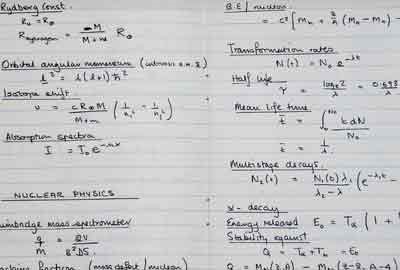 Rydberg Const.
R∞ = R∞
R hydrogen = M / M+m R∞
Orbital angular momentum
l² = l(l+1)ħ²
Isotope shift
υ = cR∞M / M+m (1/n₁² - 1/n₂²)
Absorption spectra
I = I₀e^-nαx
NUCLEAR PHYSICS
Bainbridge mass spectrometer
q/M = 2V / B²DS
fraction (mass defect/nucleon)
B.E/nucleon
= c²[Mn + Z/A (MH - Mn) -
Transformation rates
N(t) = N₀e^-λt
Half life
τ = loge2 / λ = 0.693 / λ
Mean life time
t̄ = ∫ t dN / N₀
t̄ = 1/λ
Multistage decays
N₂(t) = N₁(0)λ₁ / λ₂-λ (e^-λ₁t -
α-decay
Energy released E₀ = Tα (1 +
Stability against
Q = Tα + Tb = E₀
Q = Mn(Z,A) - Mn(Z-2, A-4)